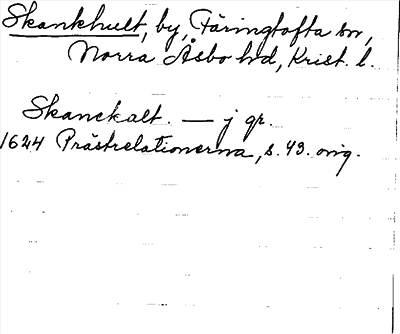 Skankhult, by, Färingtofta sn,
Norra Åsbo hd, Krist. l.
Skanckalt. — j gr.
1624 Prästrelationerna, s. 43. orig.